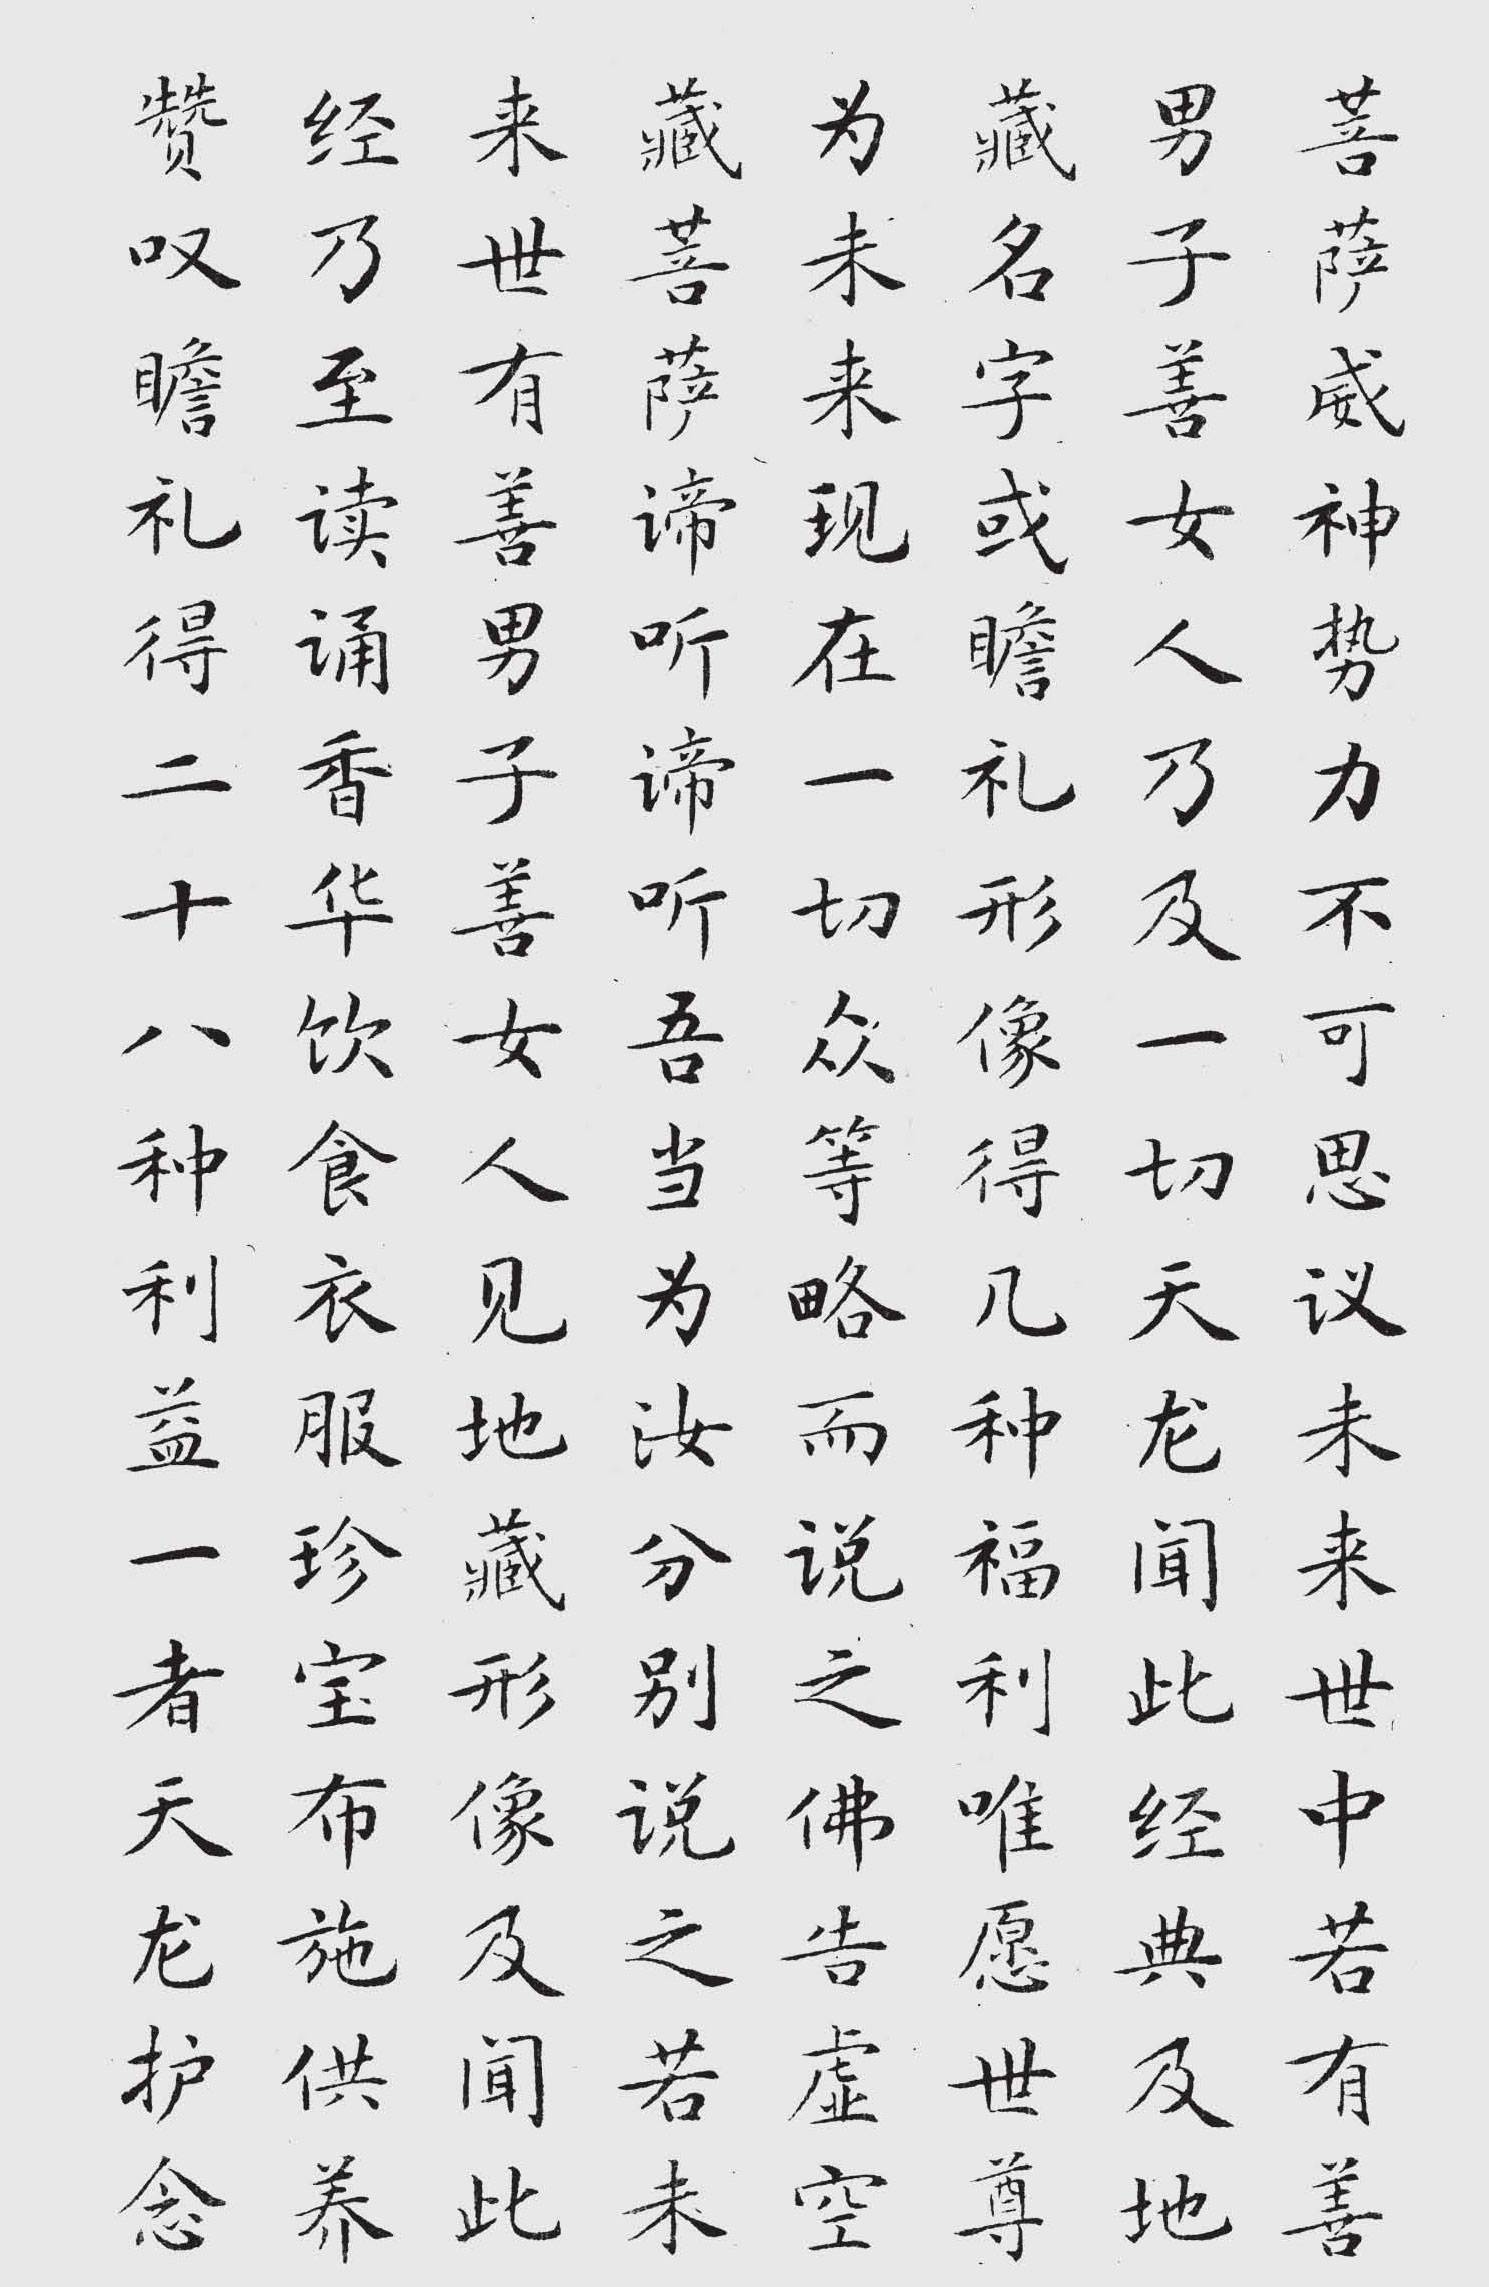 菩萨威神势力不可思议未来世中若有善
男子善女人乃及一切天龙闻此经典及地
藏名字或瞻礼形像得几种福利唯愿世尊
为未来现在一切众等略而说之佛告虚空
藏菩萨谛听谛听吾当为汝分别说之若未
来世有善男子善女人见地藏形像及闻此
经乃至读诵香华饮食衣服珍宝布施供养
赞叹瞻礼得二十八种利益一者天龙护念